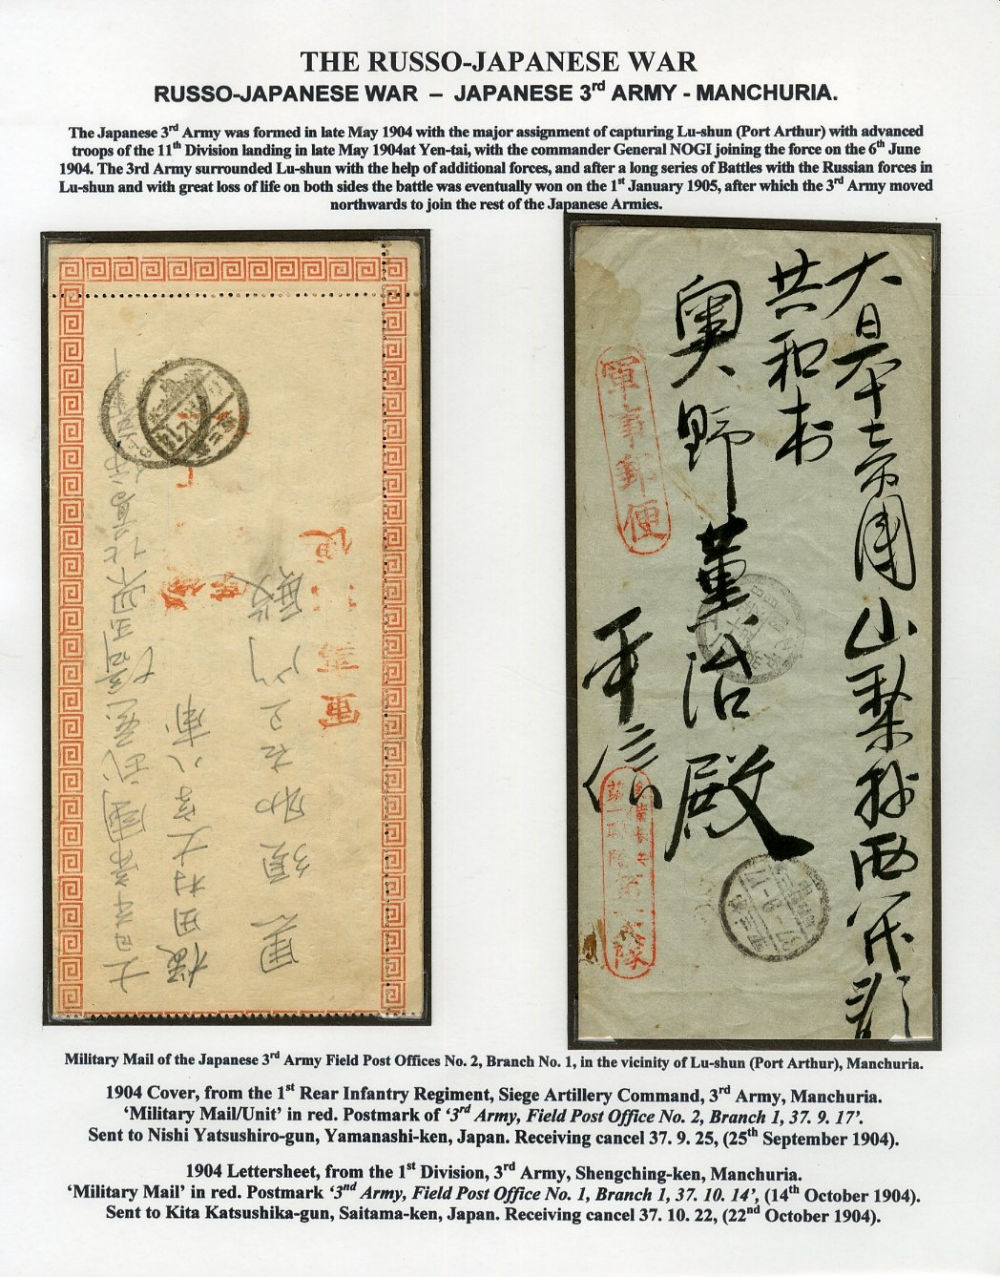 THE RUSSO-JAPANESE WAR
RUSSO-JAPANESE WAR – JAPANESE 3rd ARMY - MANCHURIA.
The Japanese 3rd Army was formed in late May 1904 with the major assignment of capturing Lu-shun (Port Arthur) with advanced
troops of the 11th Division landing in late May 1904at Yen-tai, with the commander General NOGI joining the force on the 6th June
1904. The 3rd Army surrounded Lu-shun with the help of additional forces, and after a long series of Battles with the Russian forces in
Lu-shun and with great loss of life on both sides the battle was eventually won on the 1st January 1905, after which the 3rd Army moved
northwards to join the rest of the Japanese Armies.
大日本帝国山梨県西八代郡
共和村
奥野董治殿
軍事郵便
平信
軍事
Military Mail of the Japanese 3rd Army Field Post Offices No. 2, Branch No. 1, in the vicinity of Lu-shun (Port Arthur), Manchuria.
1904 Cover, from the 1st Rear Infantry Regiment, Siege Artillery Command, 3rd Army, Manchuria.
‘Military Mail/Unit’ in red. Postmark of ‘3rd Army, Field Post Office No. 2, Branch 1, 37. 9. 17’.
Sent to Nishi Yatsushiro-gun, Yamanashi-ken, Japan. Receiving cancel 37. 9. 25, (25th September 1904).
1904 Lettersheet, from the 1st Division, 3rd Army, Shengching-ken, Manchuria.
‘Military Mail’ in red. Postmark ‘3nd Army, Field Post Office No. 1, Branch 1, 37. 10. 14’, (14th October 1904).
Sent to Kita Katsushika-gun, Saitama-ken, Japan. Receiving cancel 37. 10. 22, (22nd October 1904).